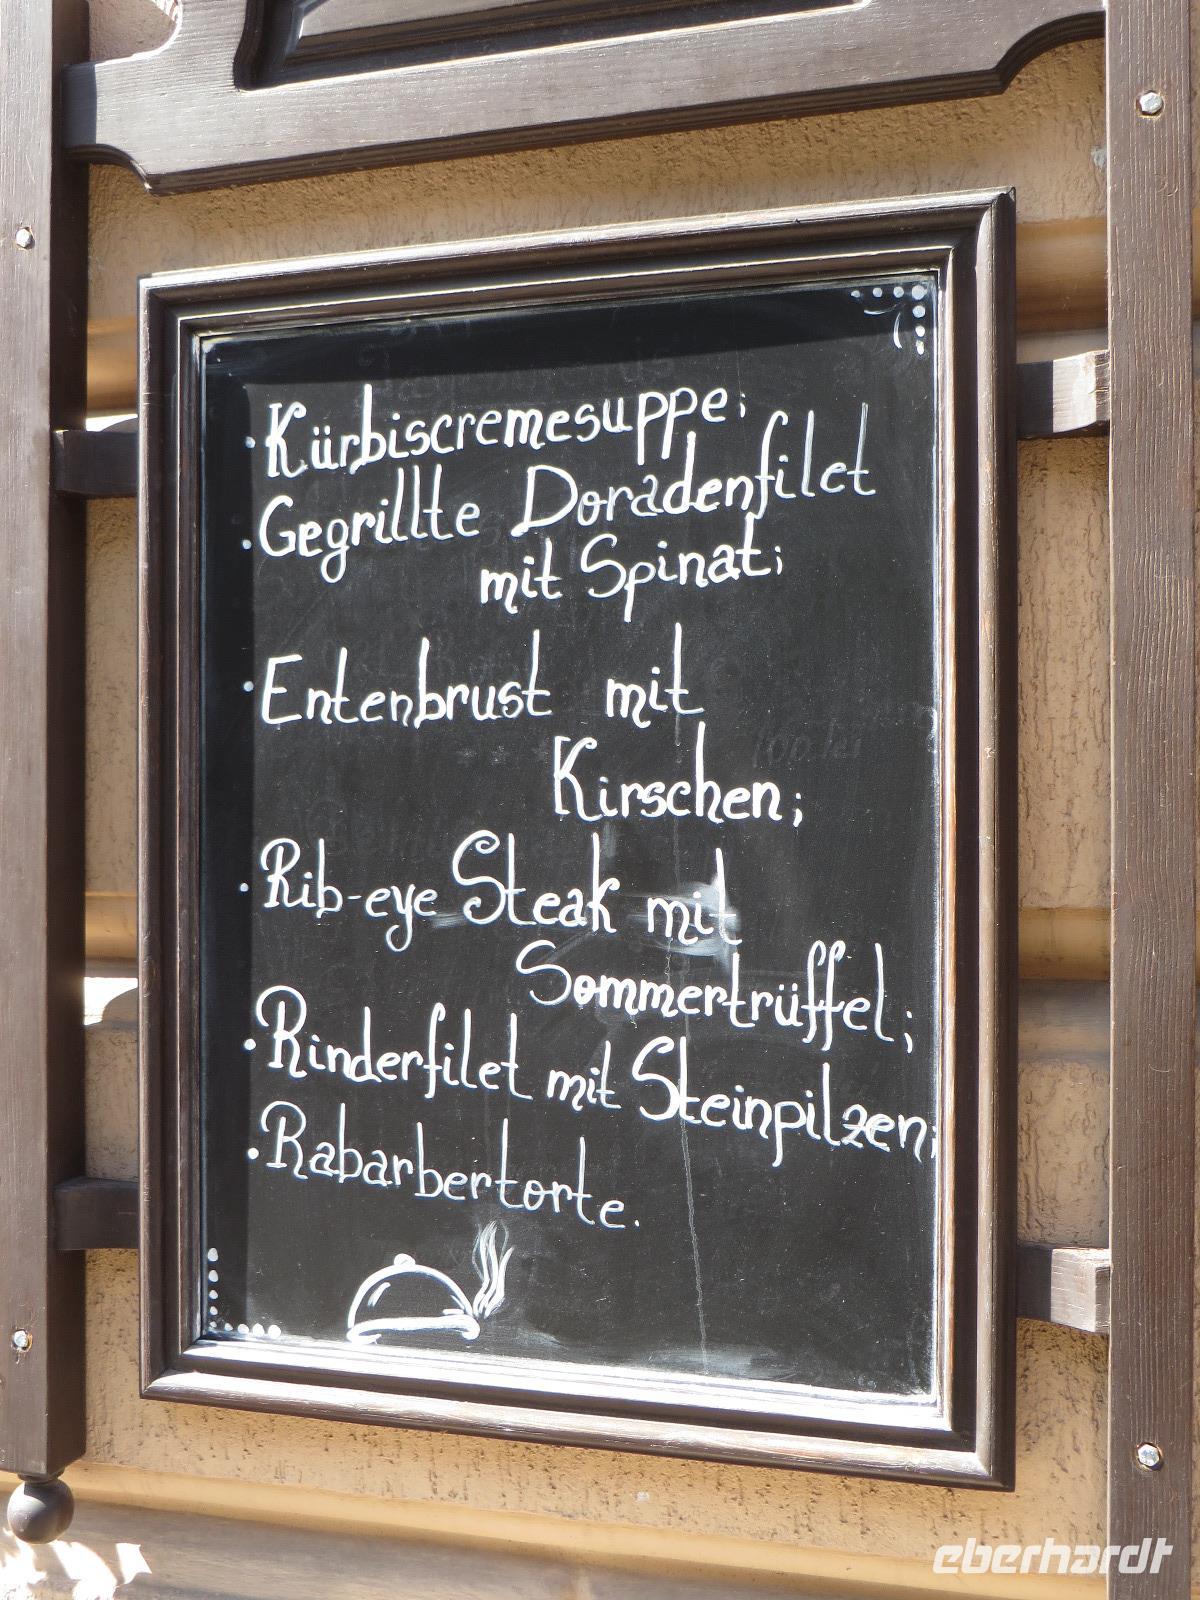 · Kürbiscremesuppe;
· Gegrillte Doradenfilet
mit Spinat;
· Entenbrust mit
Kirschen;
· Rib-eye Steak mit
Sommertrüffel;
· Rinderfilet mit Steinpilzen;
· Rabarbertorte.
eberhardt